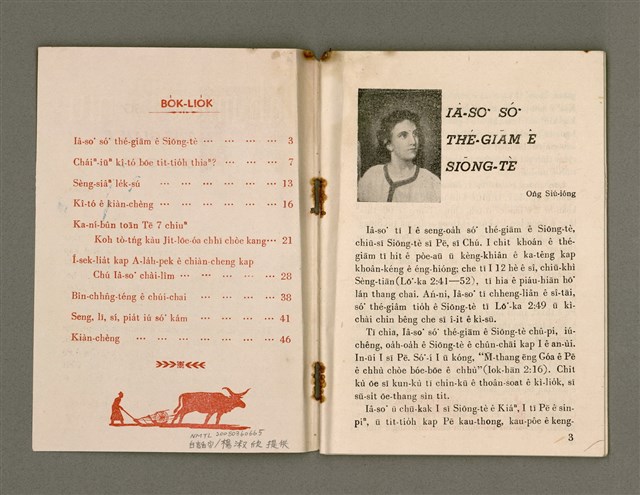 BO̍K-LIO̍K
Iâ-so͘ só͘ thé-giām ê Siōng-tè ... ... ... ... 3
Cháiⁿ-iūⁿ kî-tó bōe tit-tio̍h thiaⁿ? ... ... ... 7
Sèng-siâⁿ le̍k-sú ... ... ... ... ... 13
Kî-tó ê kiàn-chêng ... ... ... ... ... 16
Ka-nî-bûn toān Tē 7 chiuⁿ
Koh tò-tńg kàu Ji̍t-lōe-óa chhī chōe kang... 21
Í-sek-lia̍t kap A-la̍h-pek ê chiàn-cheng kap
Chú Iâ-so͘ chài-lîm ... ... ... ... 28
Bîn-chhn̂g-têng ê chúi-chai ... ... ... ... 38
Seng, lī, sí, pia̍t iú só͘ kám ... ... ... ... 41
Kiàn-chêng ... ... ... ... ... 46
NMTL 20050760665
楊淑
IÂ-SO͘ SÓ͘
THÉ-GIĀM Ê
SIŌNG-TÈ
Ông Siù-iông
Iâ-so͘ tī I ê seng-oa̍h só͘ thé-giām ê Siōng-tè,
chiū-sī Siōng-tè sī Pē, sī Chú. I chit khoán ê thé-
giām tī hit ê pòe-aū ū kèng-khiân ê ka-têng kap
khoân-kéng ê éng-hióng; che tī I 12 hè ê sî, chiū-khì
Sèng-tiān(Lō͘-ka 2:41—52), tī hia ê piáu-hiān hō͘
lán thang chai. Án-ni, Iâ-so͘ tī chheng-liân ê sî-tāi,
só͘ thé-giām tio̍h ê Siōng-tè tī Lō͘-ka 2:49 ū kì-
chài chin bêng che sī i-it ê kì-sū.
Tī chia, Iâ-so͘ só͘ thé-giām ê Siōng-tè chū-pi, iú-
chêng, oa̍h-oa̍h ê Siōng-tè ê chûn-chāi kap I ê an-úi.
In-ūi I sī Pē. Só͘-í I ū kóng, "M̄-thang ēng Góa ê Pē
ê chhù chòe bóe-bōe ê chhù"(Iok-hān 2:16). Chit
kù óe sī kun-kù tī chìn-kū ê thoân-soat ê kì-lio̍k, sī
sū-si̍t óe-thang sìn tit.
Iâ-so͘ ū chū-kak I sī Siōng-tè ê Kiáⁿ, I tī Pē ê sin-
piⁿ, ū tit-tio̍h kap Pē kau-thong, kau-pôe ê keng-
3